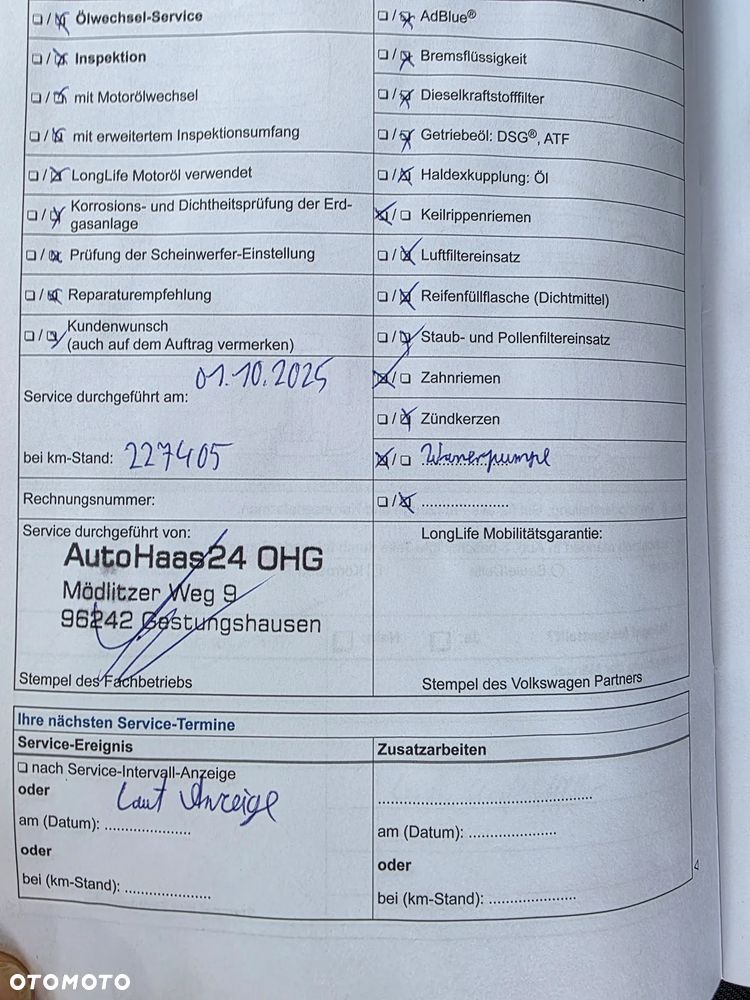 ❏/☒ Ölwechsel-Service
❏/☒ Inspektion
❏/☒ mit Motorölwechsel
❏/☒ mit erweitertem Inspektionsumfang
❏/☒ LongLife Motoröl verwendet
❏/☒ Korrosions- und Dichtheitsprüfung der Erd-
gasanlage
❏/☒ Prüfung der Scheinwerfer-Einstellung
❏/☒ Reparaturempfehlung
❏/☒ Kundenwunsch
(auch auf dem Auftrag vermerken)
Service durchgeführt am: 01.10.2025
bei km-Stand: 227405
Rechnungsnummer:
Service durchgeführt von:
AutoHaas24 OHG
Mödlitzer Weg 9
96242 Gestungshausen
Stempel des Fachbetriebs
❏/☒ AdBlue®
❏/☒ Bremsflüssigkeit
❏/☒ Dieselkraftstofffilter
❏/☒ Getriebeöl: DSG®, ATF
❏/☒ Haldexkupplung: Öl
☒/❏ Keilrippenriemen
❏/☒ Luftfiltereinsatz
❏/☒ Reifenfüllflasche (Dichtmittel)
❏/☒ Staub- und Pollenfiltereinsatz
☒/❏ Zahnriemen
❏/☒ Zündkerzen
☒/❏ Wasserpumpe
❏/☒ ......................
LongLife Mobilitätsgarantie:
Stempel des Volkswagen Partners
Ihre nächsten Service-Termine
Service-Ereignis
❏ nach Service-Intervall-Anzeige
oder
Laut Anzeige
am (Datum): ......................
oder
bei (km-Stand): ......................
Zusatzarbeiten
......................................................
am (Datum): ......................
oder
bei (km-Stand): ......................
4
OTOMOTO